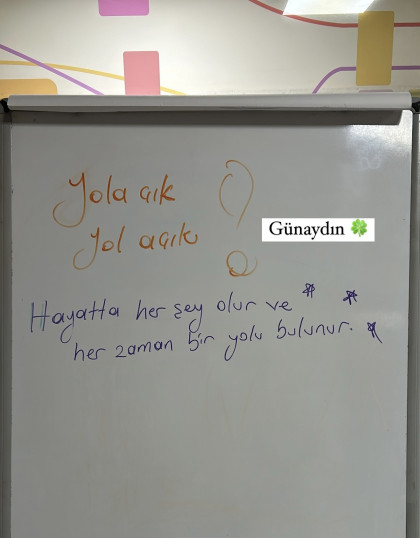 Yola çık
Yol açık
!
Günaydın 🍀
Hayatta her şey olur ve
her zaman bir yolu bulunur.